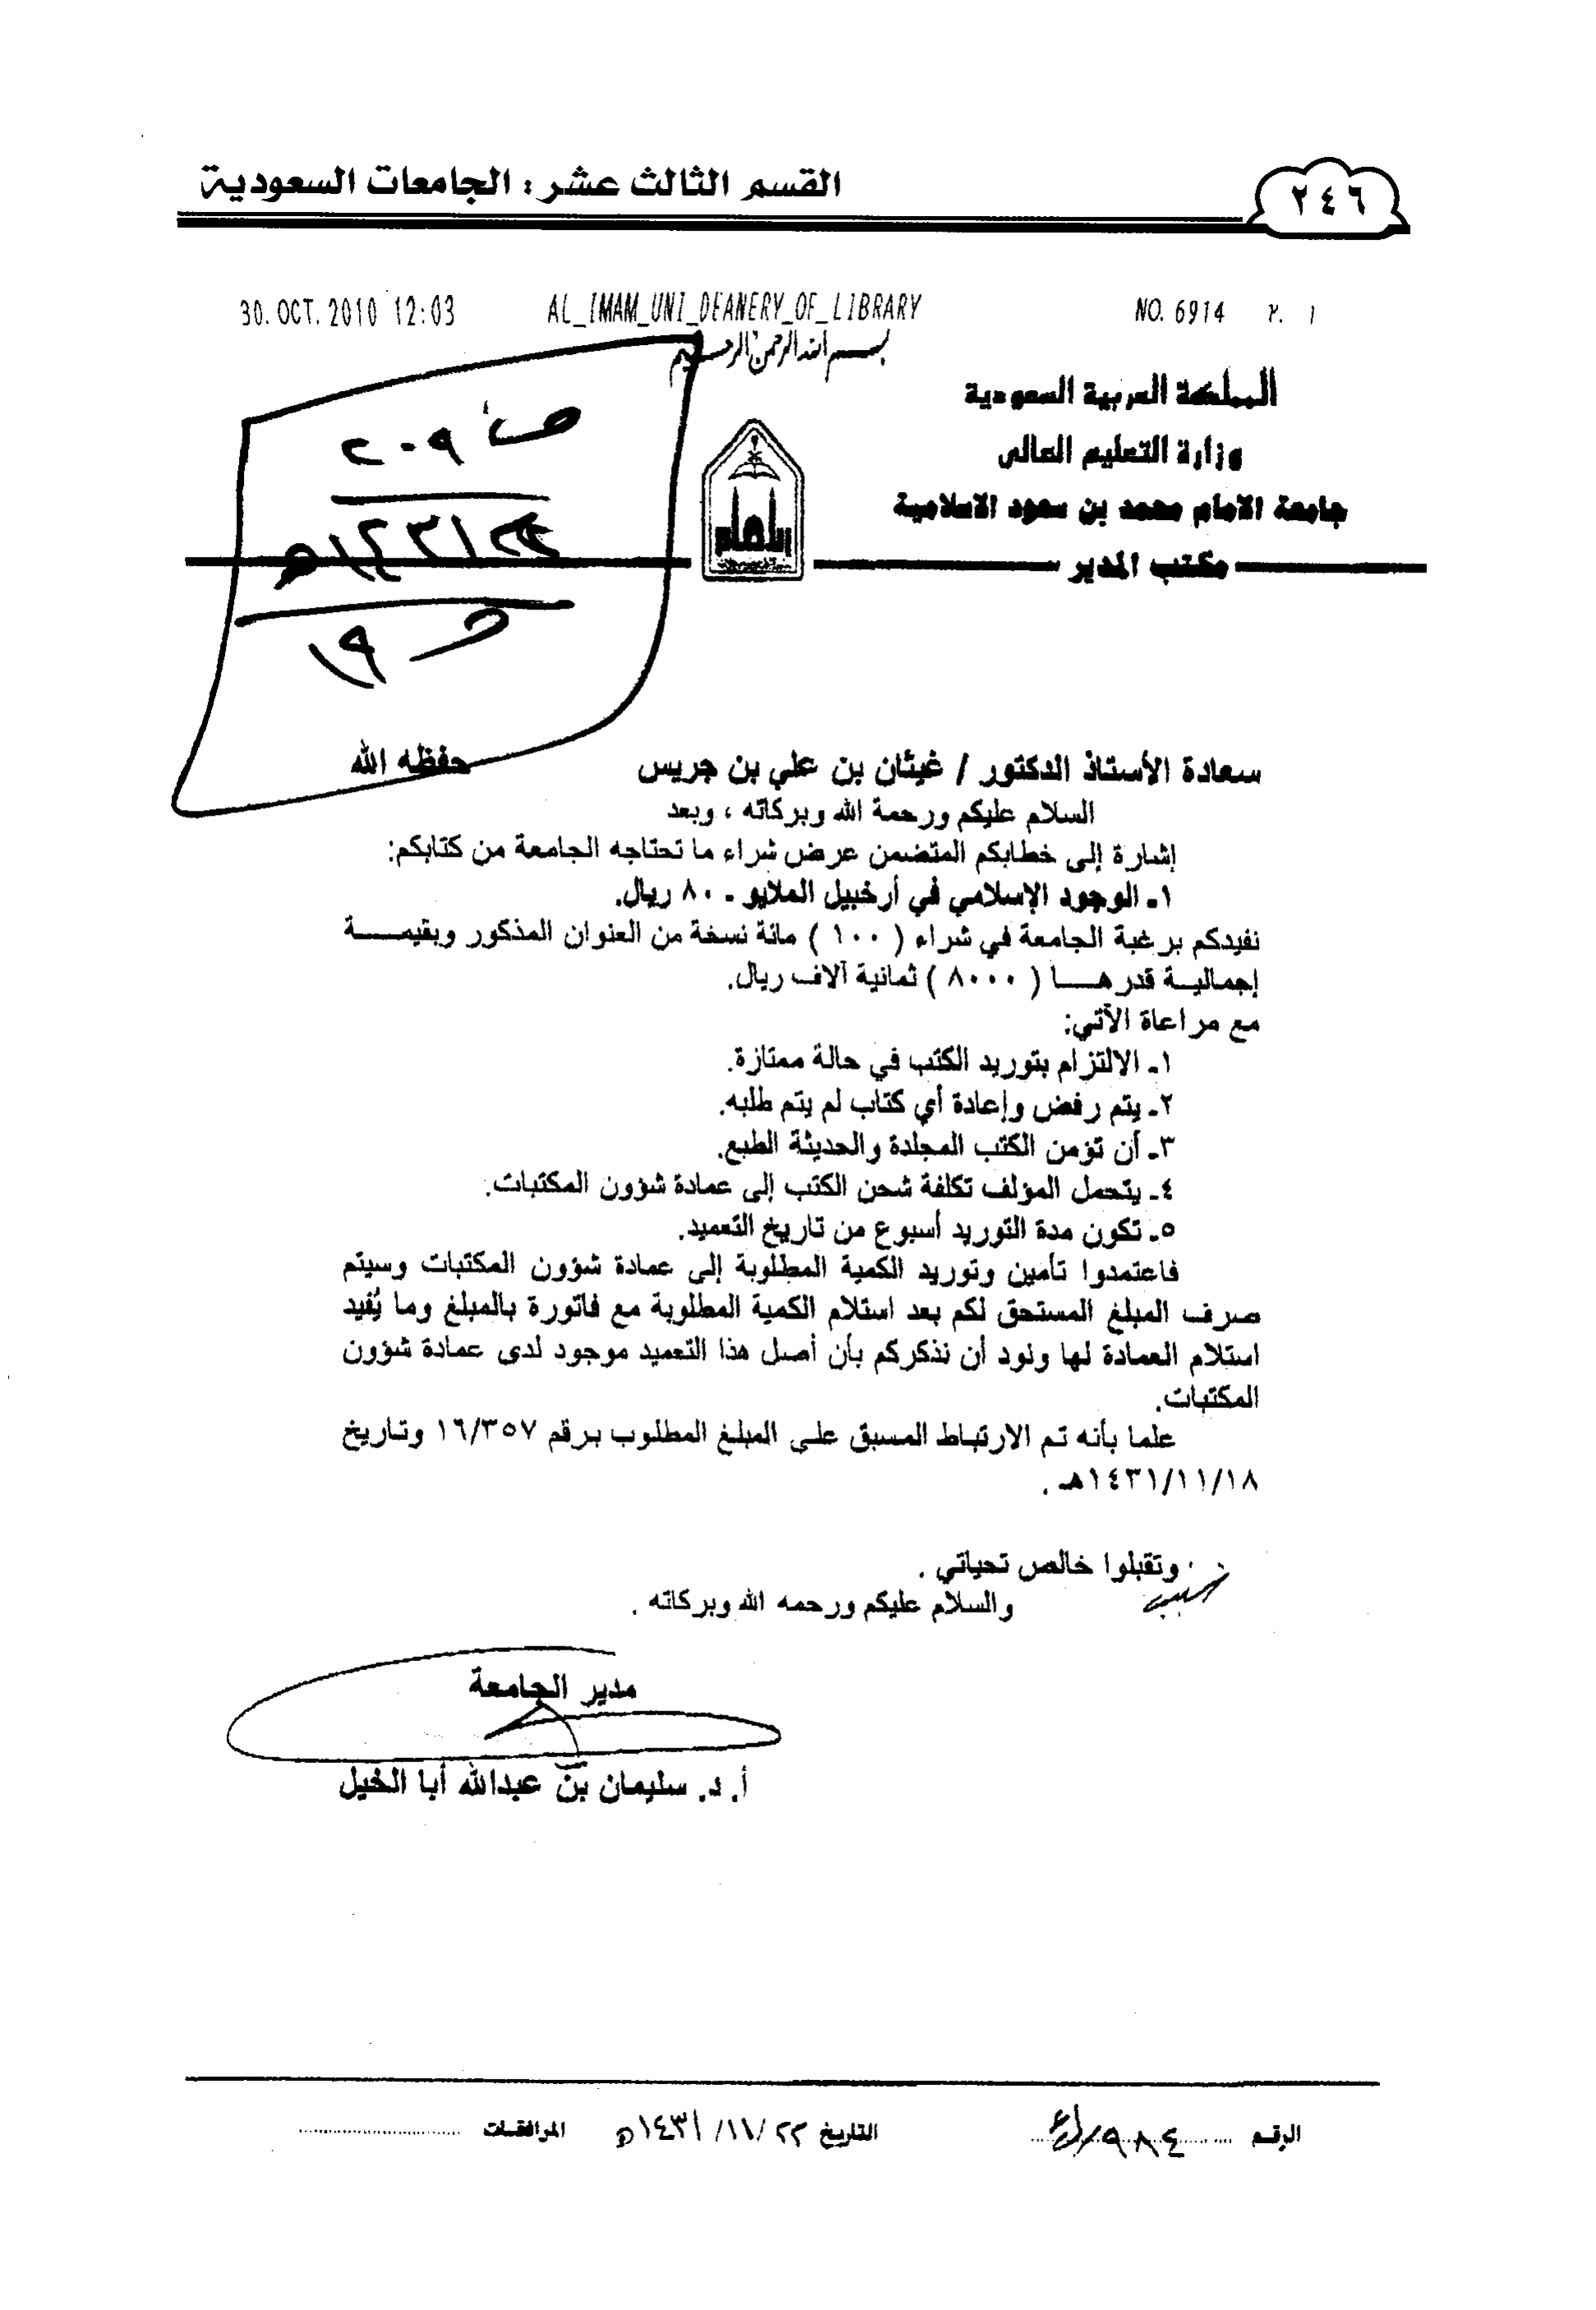 ٢٤٦
القسم الثالث عشر : الجامعات السعودية
30. OCT. 2010 12:03 AL_IMAM_UNI_DEANERY_OF_LIBRARY NO. 6914
بسم الله الرحمن الرحيم
المملكة العربية السعودية
وزارة التعليم العالي
جامعة الامام محمد بن سعود الاسلامية
مكتب المدير
٢٠٩
١٩
سعادة الأستاذ الدكتور / غيثان بن علي بن جريس حفظه الله
السلام عليكم ورحمة الله وبركاته ، وبعد
إشارة إلى خطابكم المتضمن عرض شراء ما تحتاجه الجامعة من كتابكم:
١- الوجود الإسلامي في أرخبيل الملايو - ٨٠ ريال.
نفيدكم برغبة الجامعة في شراء ( ١٠٠ ) مائة نسخة من العنوان المذكور وبقيمـــــة
إجماليـة قدرهــــا ( ٨٠٠٠ ) ثمانية آلاف ريال.
مع مراعاة الآتي:
١- الالتزام بتوريد الكتب في حالة ممتازة.
٢- يتم رفض وإعادة أي كتاب لم يتم طلبه.
٣- أن تؤمن الكتب المجلدة والحديثة الطبع.
٤- يتحمل المؤلف تكلفة شحن الكتب إلى عمادة شؤون المكتبات.
٥- تكون مدة التوريد أسبوع من تاريخ التعميد.
فاعتمدوا تأمين وتوريد الكمية المطلوبة إلى عمادة شؤون المكتبات وسيتم
صرف المبلغ المستحق لكم بعد استلام الكمية المطلوبة مع فاتورة بالمبلغ وما يُفيد
استلام العمادة لها ونود أن نذكركم بأن أصل هذا التعميد موجود لدى عمادة شؤون
المكتبات.
علما بأنه تم الارتباط المسبق على المبلغ المطلوب برقم ١٦/٣٥٧ وتاريخ
١٤٣١/١١/١٨هـ .
وتقبلوا خالص تحياتي .
والسلام عليكم ورحمه الله وبركاته .
مدير الجامعة
أ. د. سليمان بن عبدالله أبا الخيل
الرقم التاريخ ٢٢ /١١/ ١٤٣١هـ المرافقات